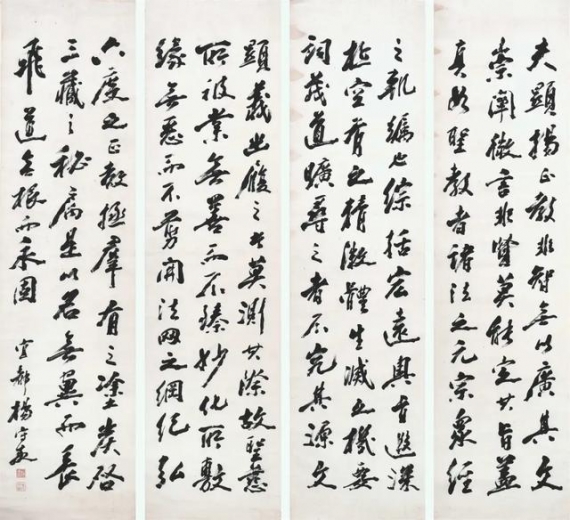 夫顯揚正教非智無以廣其文
崇闡微言非賢莫能定其旨蓋
真如聖教者諸法之元宗眾經
之軌躅也綜括宏遠奧旨遐深
極空有之精微體生滅之機要
詞茂道曠尋之者不究其源文
顯義幽履之者莫測其際故聖慈
所被業無善而不臻妙化所敷
緣無惡而不剪開法網之綱紀弘
六度之正教拯羣有之塗炭啓
三藏之秘扃是以名無翼而長
飛道無根而永固
宜都楊守敬